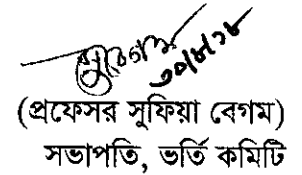 ৩০/৮/১৮
(প্রফেসর সুফিয়া বেগম)
সভাপতি, ভর্তি কমিটি